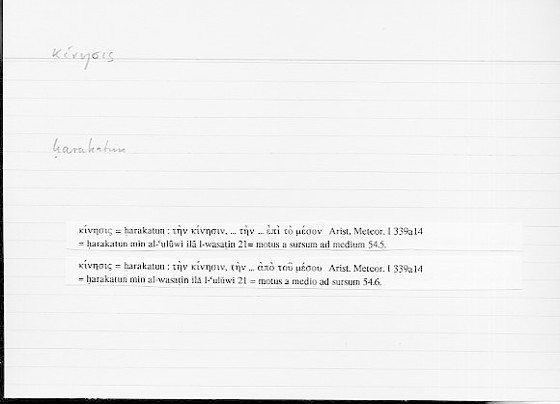 κίνησις
ḥarakatun
κίνησις = ḥarakatun : τὴν κίνησιν, ... τὴν ... ἐπὶ τὸ μέσον Arist. Meteor. I 339a14
= ḥarakatun min al-ʿulūwi ilā l-wasaṭin 21= motus a sursum ad medium 54.5.
κίνησις = ḥarakatun : τὴν κίνησιν, τὴν ... ἀπὸ τοῦ μέσου Arist. Meteor. I 339a14
= ḥarakatun min al-wasaṭin ilā l-ʿulūwi 21 = motus a medio ad sursum 54.6.